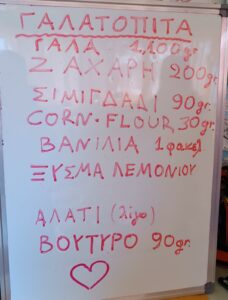 ΓΑΛΑΤΟΠΙΤΑ
ΓΑΛΑ 1,100gr
ΖΑΧΑΡΗ 200gr.
ΣΙΜΙΓΔΑΛΙ 90gr.
CORN-FLOUR 30gr.
ΒΑΝΙΛΙΑ 1 φακελ
ΞΥΣΜΑ ΛΕΜΟΝΙΟΥ
ΑΛΑΤΙ (λίγο)
ΒΟΥΤΥΡΟ 90gr.